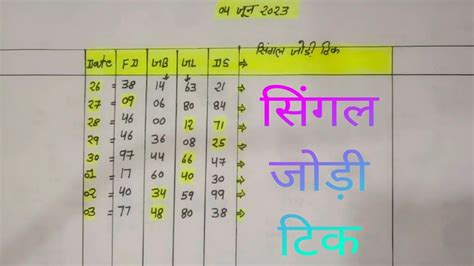 04 जून 2023
सिंगल जोड़ी टिक
Date FD GB GL DS →
26 = 38 14 63 21 →
27 = 09 06 80 84 →
28 = 46 00 12 71 →
29 = 46 36 08 25 →
30 = 97 44 66 47 →
01 = 17 60 40 30 →
02 = 40 34 59 99 →
03 = 77 48 80 38 →
सिंगल
जोड़ी
टिक